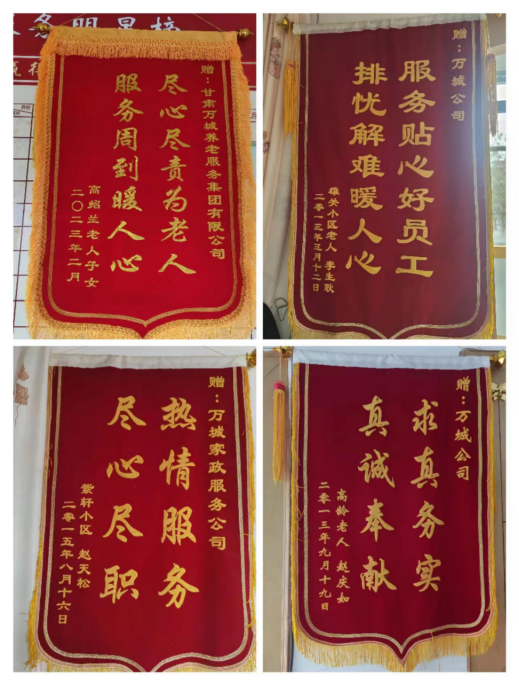 赠：甘肃万城养老服务集团有限公司
尽心尽责为老人
服务周到暖人心
高绍兰老人子女
二〇二三年二月
赠：万城公司
服务贴心好员工
排忧解难暖人心
雄关小区老人 李生耿
二零一三年三月十二日
赠：万城家政服务公司
热情服务
尽心尽职
紫轩小区 赵天松
二零一五年八月十六日
赠：万城公司
求真务实
真诚奉献
高龄老人 赵庆如
二零一三年九月十九日